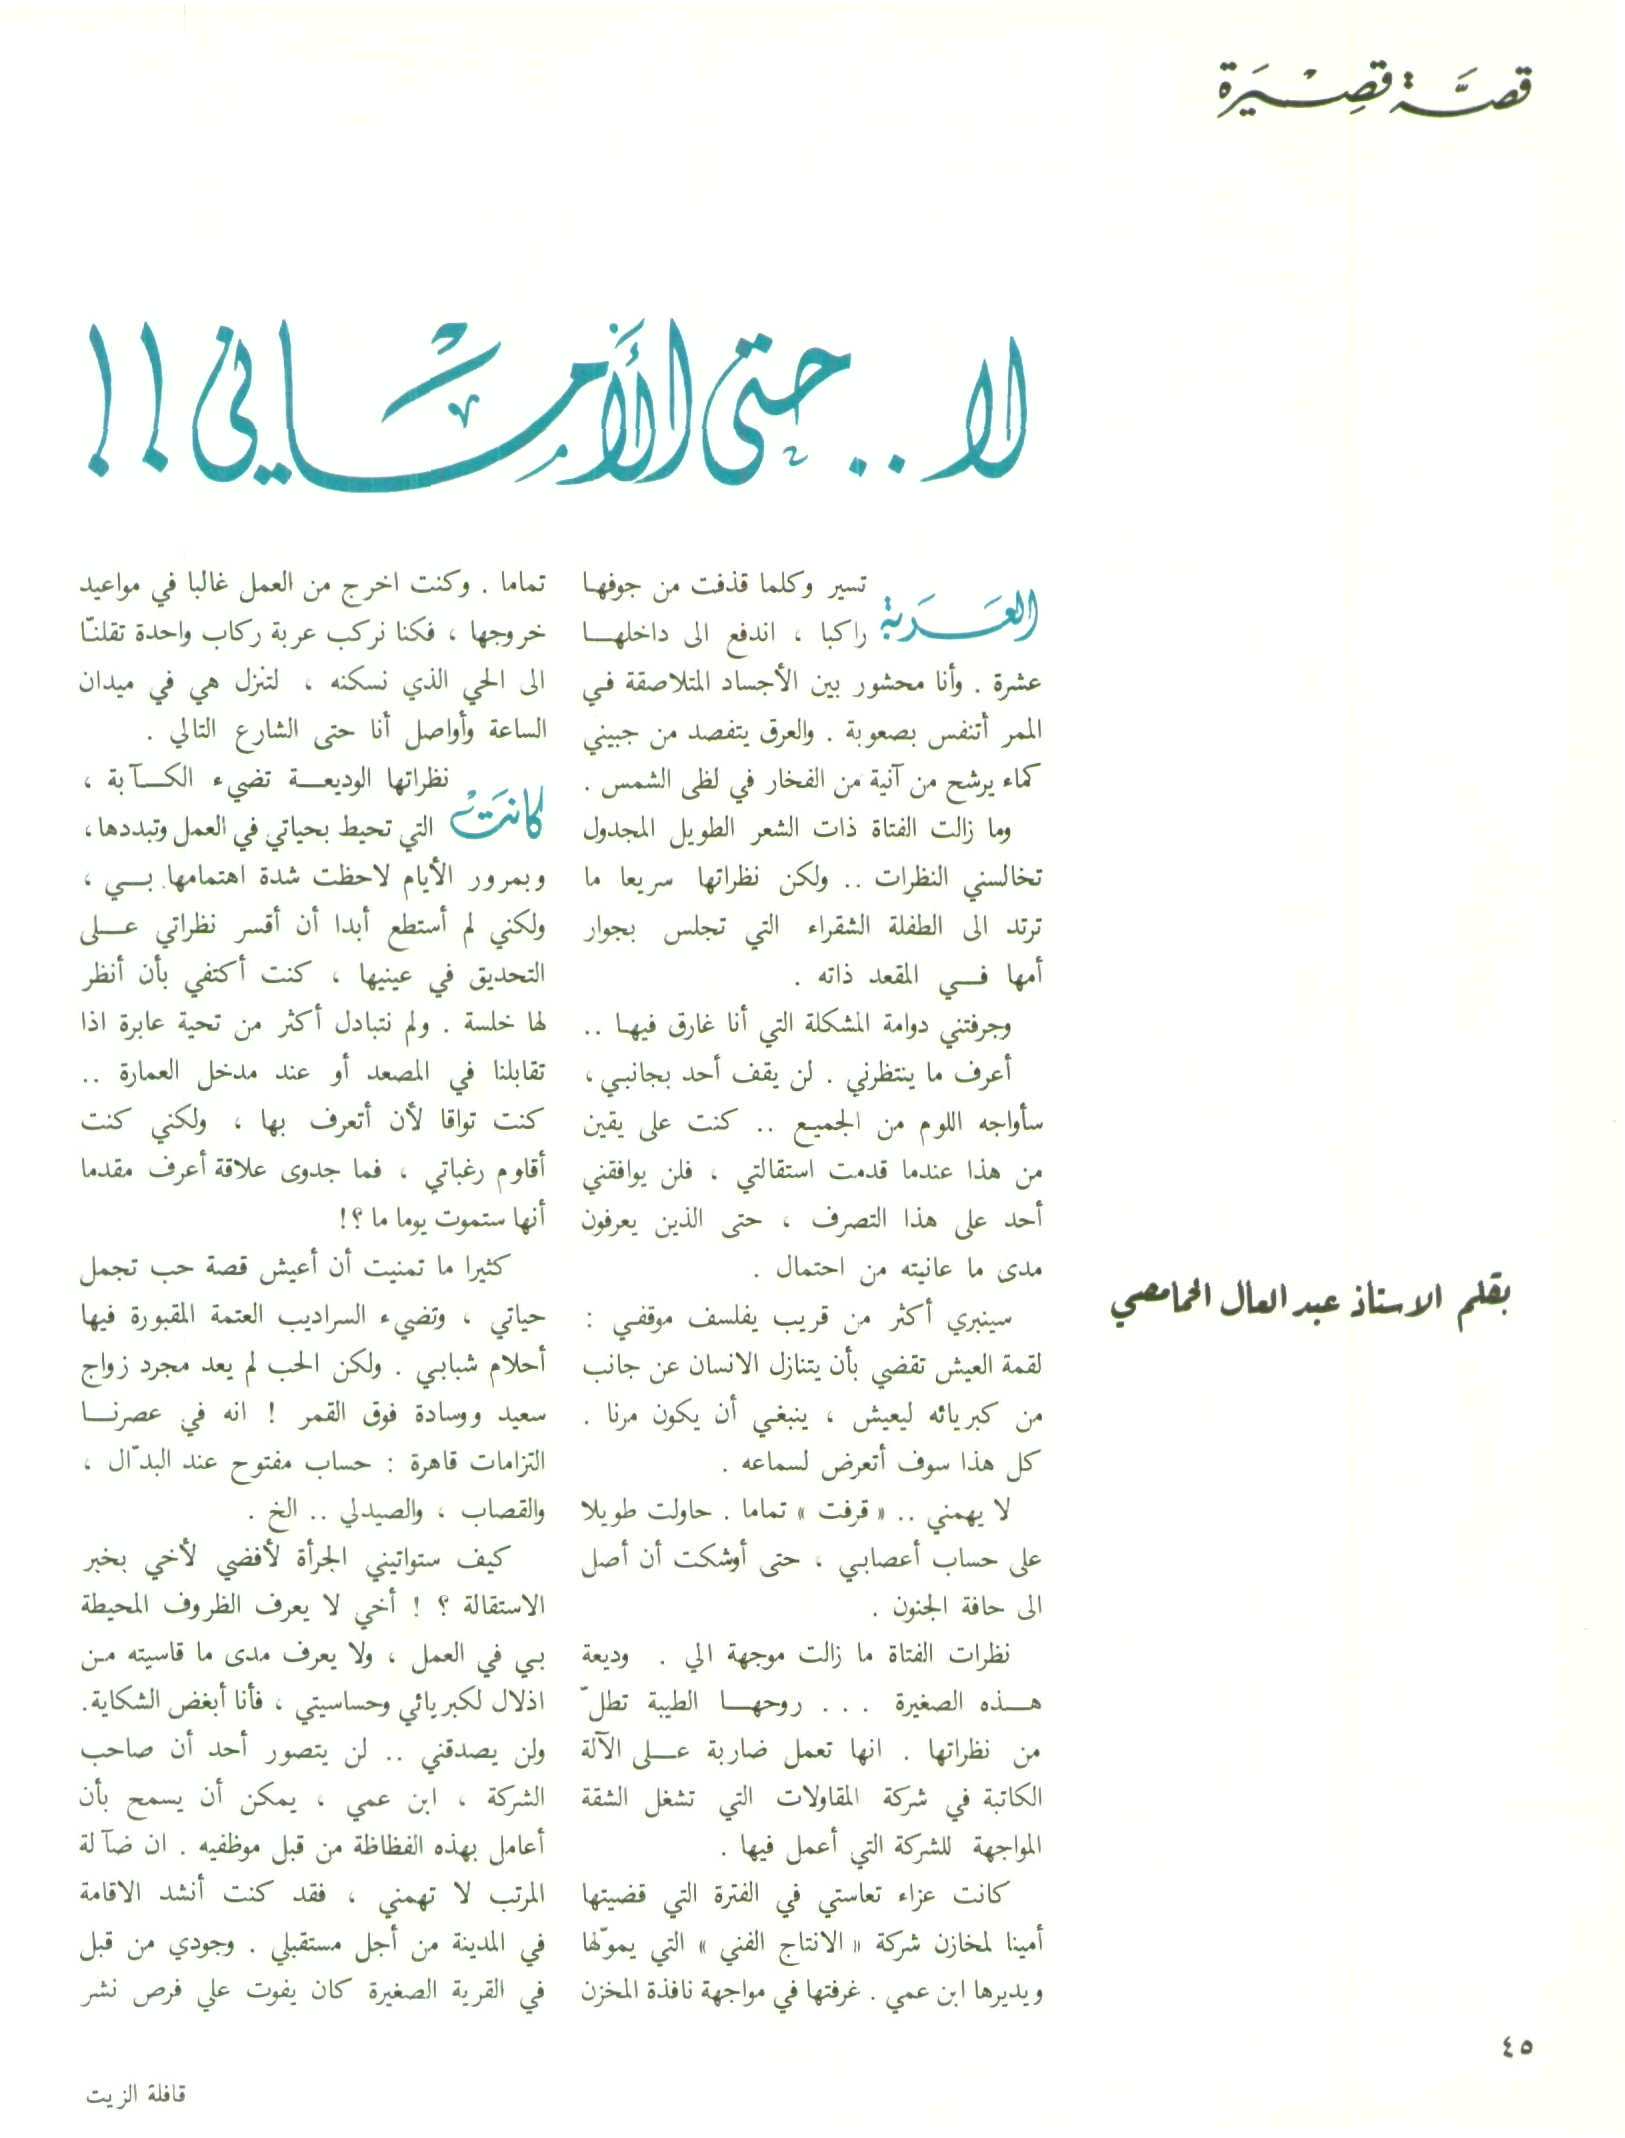 قصَّة قصِيْرَة
لا .. حتى الأمَانْي !!
بقلم الاستاذ عبد العال الحمامصي
العَرَبَة تسير وكلما قذفت من جوفها
راكبا ، اندفع الى داخلها
عشرة . وأنا محشور بين الأجساد المتلاصقة في
الممر أتنفس بصعوبة . والعرق يتفصد من جبيني
كماء يرشح من آنية من الفخار في لظى الشمس .
وما زالت الفتاة ذات الشعر الطويل المجدول
تخالسني النظرات .. ولكن نظراتها سريعا ما
ترتد الى الطفلة الشقراء التي تجلس بجوار
أمها في المقعد ذاته .
وجرفتني دوامة المشكلة التي أنا غارق فيها ..
أعرف ما ينتظرني . لن يقف أحد بجانبي ،
سأواجه اللوم من الجميع .. كنت على يقين
من هذا عندما قدمت استقالتي ، فلن يوافقني
أحد على هذا التصرف ، حتى الذين يعرفون
مدى ما عانيته من احتمال .
سينبري أكثر من قريب يفلسف موقفي :
لقمة العيش تقضي بأن يتنازل الانسان عن جانب
من كبريائه ليعيش ، ينبغي أن يكون مرنا .
كل هذا سوف أتعرض لسماعه .
لا يهمني .. « قرفت » تماما . حاولت طويلا
على حساب أعصابي ، حتى أوشكت أن أصل
الى حافة الجنون .
نظرات الفتاة ما زالت موجهة الي . وديعة
هذه الصغيرة ... روحها الطيبة تطلّ
من نظراتها . انها تعمل ضاربة على الآلة
الكاتبة في شركة المقاولات التي تشغل الشقة
المواجهة للشركة التي أعمل فيها .
كانت عزاء تعاستي في الفترة التي قضيتها
أمينا لمخازن شركة « الانتاج الفني » التي يموّلها
ويديرها ابن عمي . غرفتها في مواجهة نافذة المخزن
تماما . وكنت اخرج من العمل غالبا في مواعيد
خروجها ، فكنا نركب عربة ركاب واحدة تقلنّا
الى الحي الذي نسكنه ، لتنزل هي في ميدان
الساعة وأواصل أنا حتى الشارع التالي .
كانَتْ نظراتها الوديعة تضيء الكآبة ،
التي تحيط بحياتي في العمل وتبددها ،
وبمرور الأيام لاحظت شدة اهتمامها بي ،
ولكني لم أستطع أبدا أن أقسر نظراتي على
التحديق في عينيها ، كنت أكتفي بأن أنظر
لها خلسة . ولم نتبادل أكثر من تحية عابرة اذا
تقابلنا في المصعد أو عند مدخل العمارة ..
كنت تواقا لأن أتعرف بها ، ولكني كنت
أقاوم رغباتي ، فما جدوى علاقة أعرف مقدما
أنها ستموت يوما ما ؟!
كثيرا ما تمنيت أن أعيش قصة حب تجمل
حياتي ، وتضيء السراديب العتمة المقبورة فيها
أحلام شبابي . ولكن الحب لم يعد مجرد زواج
سعيد ووسادة فوق القمر ! انه في عصرنا
التزامات قاهرة : حساب مفتوح عند البدّال ،
والقصاب ، والصيدلي .. الخ .
كيف ستواتيني الجرأة لأفضي لأخي بخبر
الاستقالة ؟ ! أخي لا يعرف الظروف المحيطة
بي في العمل ، ولا يعرف مدى ما قاسيته من
اذلال لكبريائي وحساسيتي ، فأنا أبغض الشكاية.
ولن يصدقني .. لن يتصور أحد أن صاحب
الشركة ، ابن عمي ، يمكن أن يسمح بأن
أعامل بهذه الفظاظة من قبل موظفيه . ان ضآلة
المرتب لا تهمني ، فقد كنت أنشد الاقامة
في المدينة من أجل مستقبلي . وجودي من قبل
في القرية الصغيرة كان يفوت علي فرص نشر
٤٥
قافلة الزيت